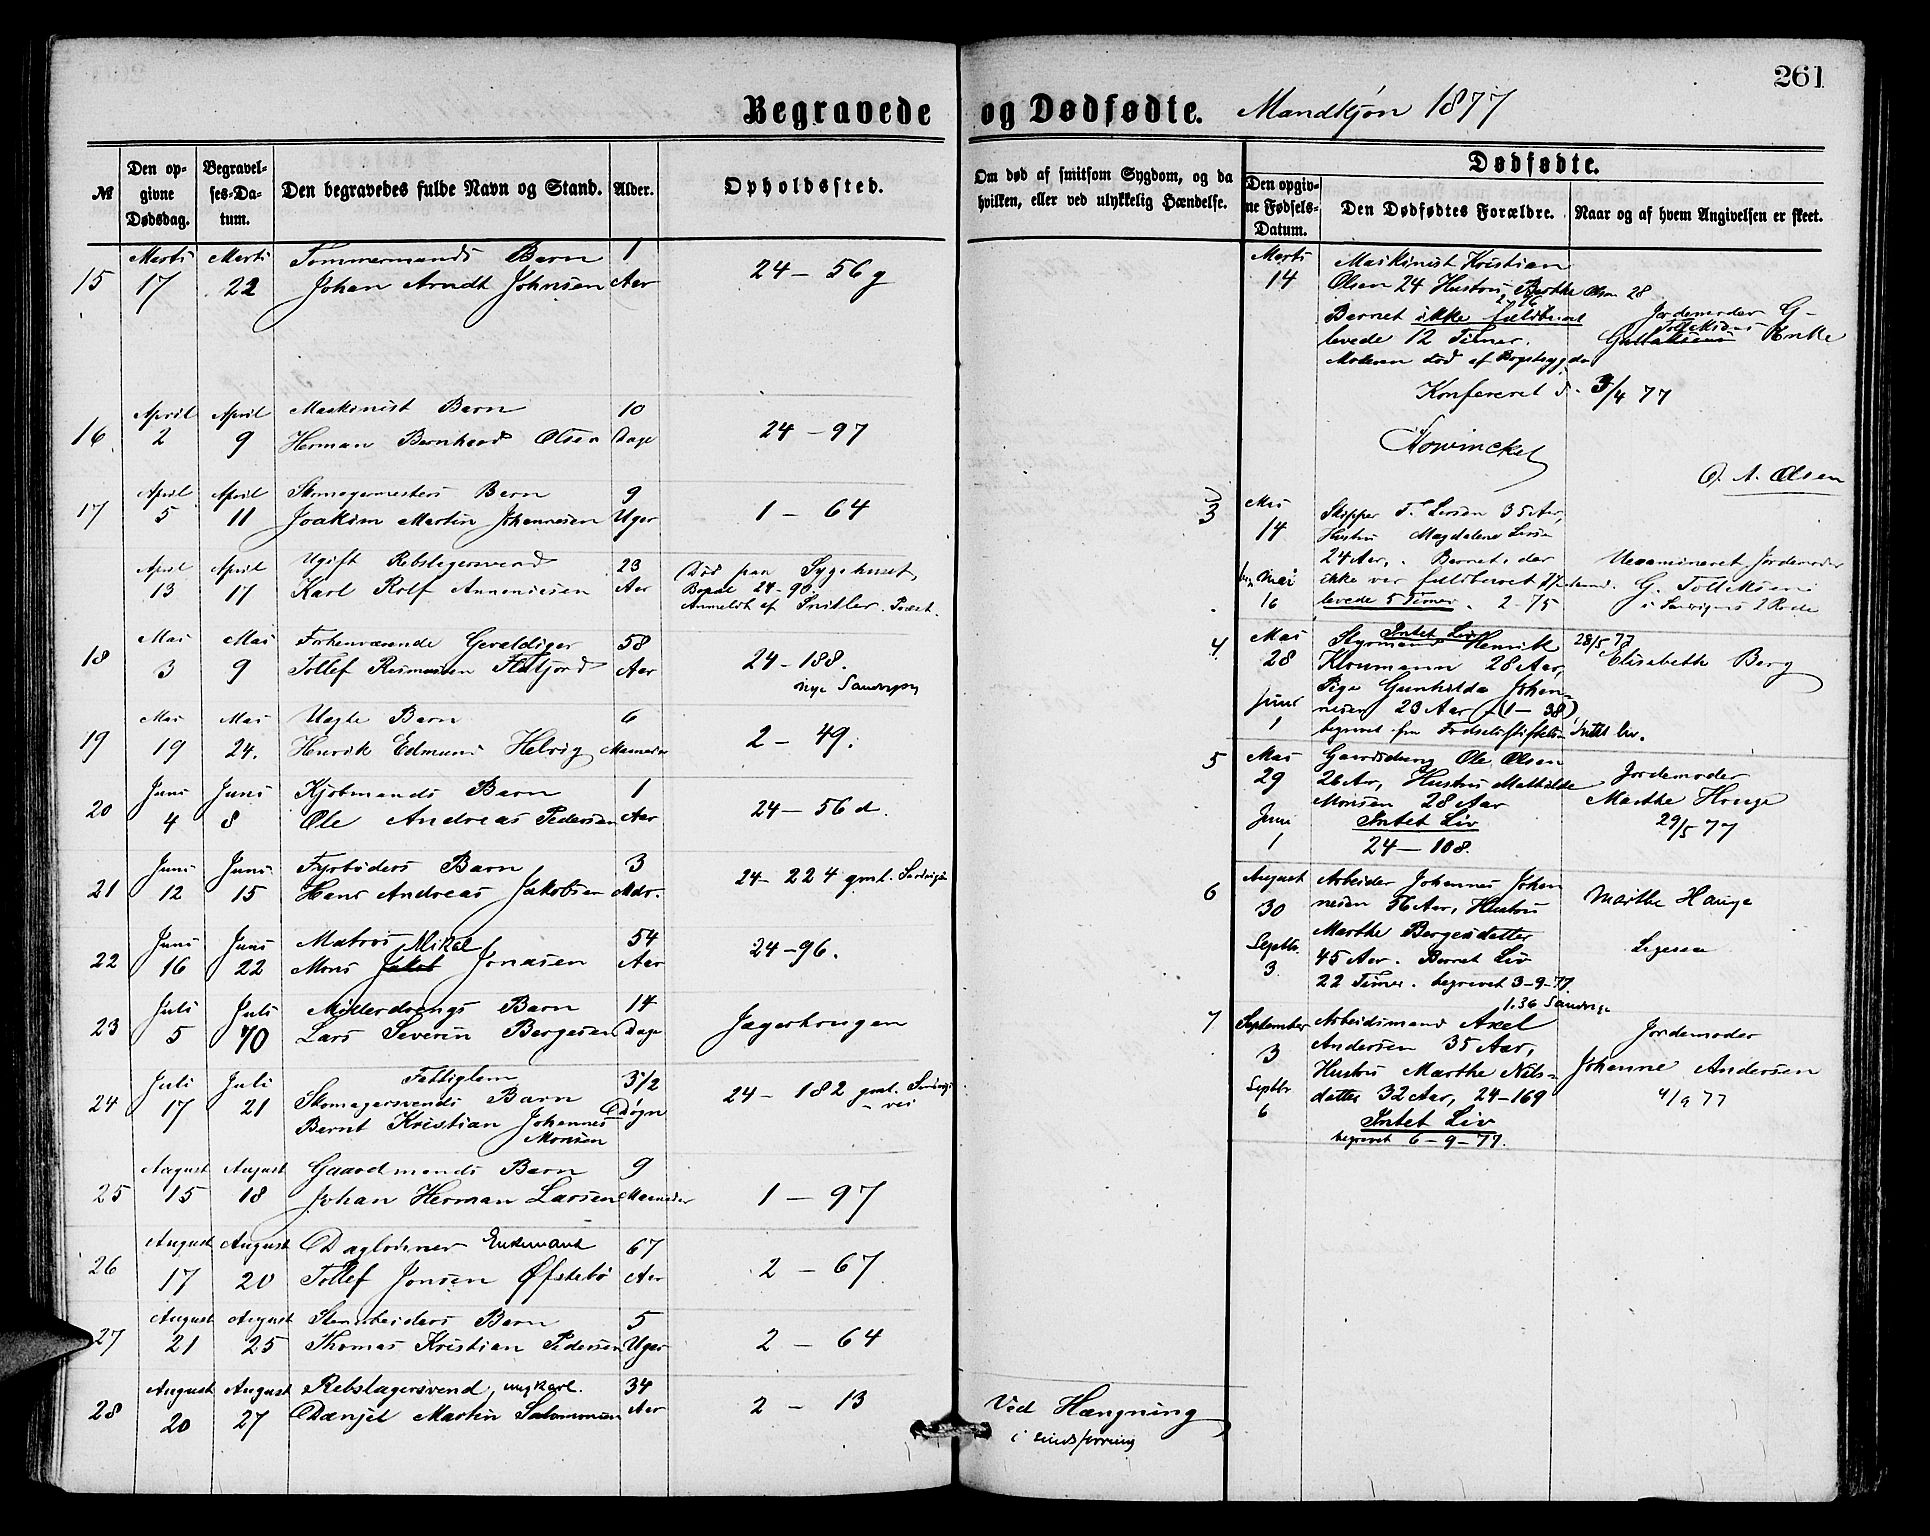 261
Begravede og Dødfødte. Mandkjøn 1877
№
Den opgivne Dødsdag.
Begravelses-Datum.
Den begravedes fulde Navn og Stand.
Alder.
Opholdssted.
Om død af smitsom Sygdom, og da hvilken, eller ved ulykkelig Hændelse.
Dødfødte.
Den opgivne Fødsels-Datum.
Den Dødfødtes Forældre.
Naar og af hvem Angivelsen er skeet.
Marts Marts Tømmermands Barn 1
15 17 22 Johan Arndt Johnsen Aar 24 – 56 g
April April Maskinist Barn 10
16 2 9 Herman Bernhard Olsen Dage 24 – 97
April April Skomagermesters Barn 9
17 5 11 Joakim Martin Johannesen Uger 1 – 64
April April Ugift Rebslagersvend 23 Død paa Sygehuset
13 17 Karl Rolf Annensen Aar Bopæl 24-90.
Anmeldt af Snitler. Præst.
Mai Mai Forhenværende Gevaldiger 58
18 3 9 Tollef Rasmussen Aar 24-188.
nye Sandvigs
Mai Mai Uægte Barn 6
19 19 24. Henrik Edmund Helvig Maaneder 2 – 49.
Juni Juni Kjøbmands Barn 1
20 4 8 Ole Andreas Pedersen Aar 24 – 56 d.
Juni Juni Fyrbøders Barn 3
21 12 15 Hans Andreas Jakobsen Mdr. 24 – 224 gml. Sandvigen
Juni Juni Matros Mikal 54
22 16 22 Mons Jakob Jonasen Aar 24-96.
Juli Juli Møllerdrengs Barn 14
23 5 10 Lars Severin Bergesen Dage Jægerhougen
Juli Juli Fattiglem 3 1/2
24 17 21 Skomagersvends Barn Døgn 24 – 182 gml. Sandvigsvei
Bernt Kristian Johannes
Monsen
August August Gaardmands Barn 9
25 15 18 Johan Herman Larsen Maaneder 1 – 97
August August Dagløhner Enkemand 67
26 17 20 Tollef Jonsen Øfstebø Aar 2 – 67
August August Stenarbeiders Barn 5
27 21 25 Thomas Kristian Pedersen Uger 2 – 64
August August Rebslagersvend, ungkarl. 34
28 20 27 Danjel Martin Salomonsen Aar 2 – 13
Ved Hængning
i sindsforvirring
Marts Maskinist Kristian
14 Olsen 24 Hustru Berthe Olsen 28
Barnet ikke fuldbaaret
levede 12 Timer.
Moderen død af Brystsygdom
Jordemoder G
Tollefsens Enke
Konfereret d. 3/4 77
Hovincket
O. A. Olsen
3 Mai Skipper T. Larsen 35 Aar,
14 Hustru Magdalene Larsen
24 Aar. Barnet, der
Mai ikke var fuldbaaret
16 levede 5 Timer. 2-75
Uexamineret Jordemoder
G. Tollefsens
i Sandvigens 2 Rode
4. Mai Intet Liv
Styrmand Henrik
28 Kloumann 28 Aar,
Pige Gunhilda Johan-
Juni nesen 23 Aar (1 – 38)
1 begravet fra Fødselsstiftelsen Intet liv.
28/5 77
Elisabeth Berg
5 Mai Gaardsdreng Ole Olsen
29 26 Aar, Hustru Mathilde
Monsen 28 Aar
Juni Intet Liv
1 24 – 108.
Jordemoder
Marthe Houge
29/5 77
6 August Arbeider Johannes Johan
30 nesen 56 Aar, Hustru
Marthe Bergesdatter
Septbr. 45 Aar. Barnet Liv
3. 22 Timer. begravet 3-9-77.
1.36 Sandvige
Marthe Hauge
Ligesaa
7 September Arbeidsmand Axel
3 Andersen 35 Aar,
Septbr Hustru Marthe Nils-
6 datter 32 Aar, 24-169
Intet Liv
begravet 6-9-77.
Jordemoder
Johanne Andersen
4/9 77